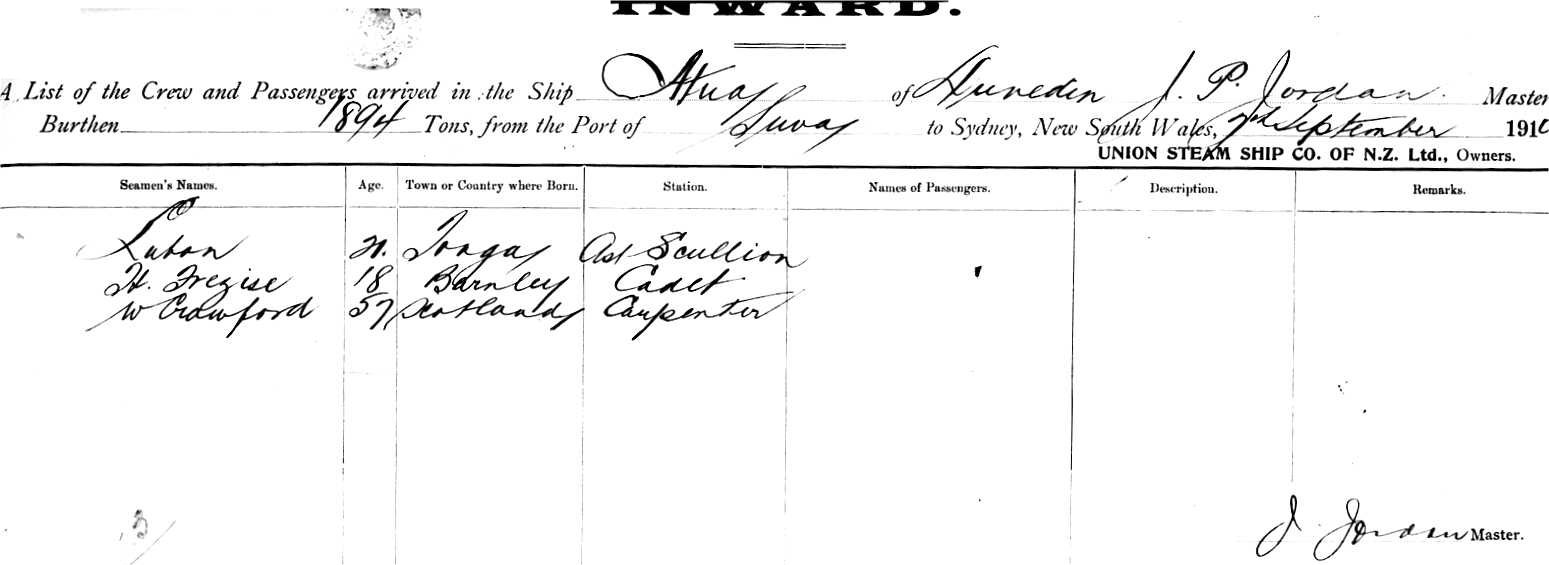 INWARD.
A List of the Crew and Passengers arrived in the Ship Atua of Dunedin J. P. Jordan Master
Burthen 1894 Tons, from the Port of Suva to Sydney, New South Wales, 7th September 1910
UNION STEAM SHIP CO. OF N.Z. Ltd., Owners.
Seamen's Names. Age. Town or Country where Born. Station. Names of Passengers. Description. Remarks.
Tonga Ast Scullion
H. Trezise 18 Barnley Cadet
W Crawford 57 Scotland Carpenter
3
J. Jordan Master.